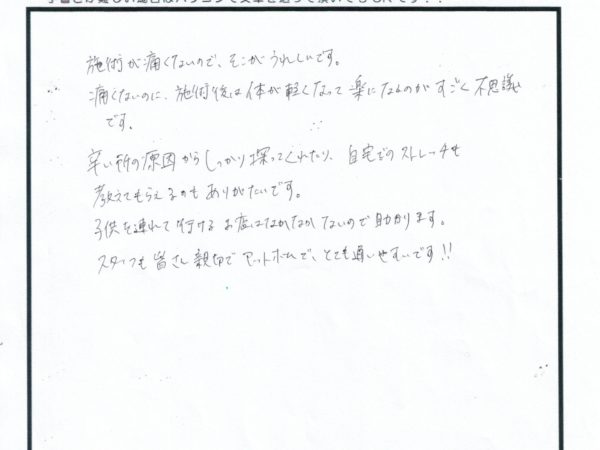 施術が痛くないので、そこがうれしいです。
痛くないのに、施術後は体が軽くなって楽になるのがすごく不思議
です。
辛い所の原因からしっかり探ってくれたり、自宅でのストレッチも
教えてもらえるのもありがたいです。
子供を連れて行けるお店はなかなかないので助かります。
スタッフも皆さん親切でアットホームで、とても通いやすいです!!